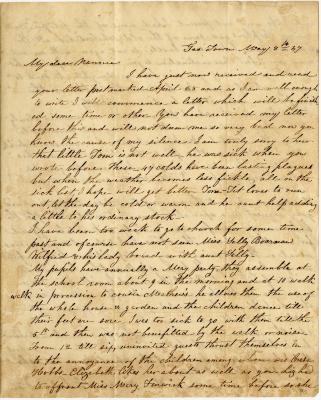 Geo Town May 8th 47
My dear
I have just now received and read
your letter postmarked April 23 and as I am well enough
to write I will commence a letter which will be finish
ed some time or other. You have received my letter
before this and will not blame me so very bad now you
know the cause of my silence. I am truly sorry to hear
that little Tom is not well, he was sick when you
wrote before. These 47 colds have been lasting plagues
but when the weather gets less fickle, all on the
sick list I hope will get better. Tom-Tit loves to run
out let the day be cold or warm and he cant help adding
a little to his ordinary stock.
I have been too weak to go to church for some time
past and of course have not seen Miss Nelly Boarman
Wilfrid & his lady board with aunt Nelly.
My pupils have annually a May party, they assemble at
the school room about 9 in the morning and at 11 walk
walk in procession to cousin he allows them the use of
the whole house & garden and the children dance till
their feet are sore. I was too sick to go with them till the
5th and then was not benefitted by the walk or noise.
From 12 till six, uninvited guests thrust themselves in
to the annoyance of the children among whom were
Hobbs. Elizabeth likes her about as well as you
to affront Miss Mary Fenwick some time before so she